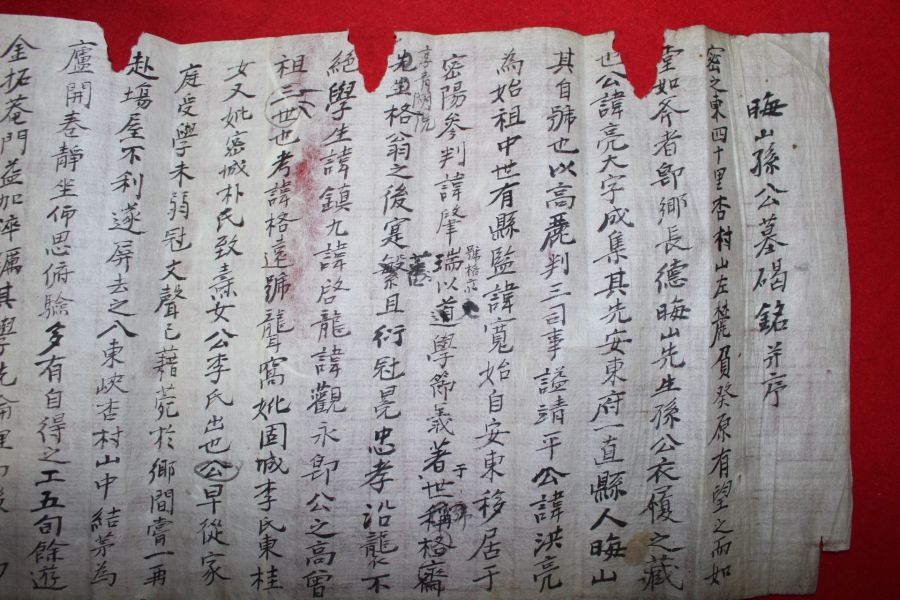 晦山孫公墓碣銘 并序
密之東四十里杏村山左麓負癸原有望之而如
堂如斧者卽鄉長德晦山先生孫公衣履之藏
也公諱亮大字成集其先安東府一直縣人晦山
其自號也以高麗判三司事謚靖平公諱洪亮
為始祖中世有縣監諱寬始自安東移居于
密陽參判諱肇瑞以道學節義著于世稱格齋
號格齋
先生格翁之後寔繁且衍冠冕忠孝沿襲不
享青湖院
舊
絕學生諱鎮九諱啓龍諱觀永卽公之高曾
祖三世也考諱格遠號龍窩妣固城李氏東桂
女又妣密城朴氏致壽女公李氏出也公早從家
庭受學未弱冠文聲已藉菀於鄉間嘗一再
赴場屋不利遂屏去之入東峽杏村山中結茅為
廬開卷靜坐仰思俯驗多有自得之工五旬餘遊
金拓菴門益加淬厲其學先倫理